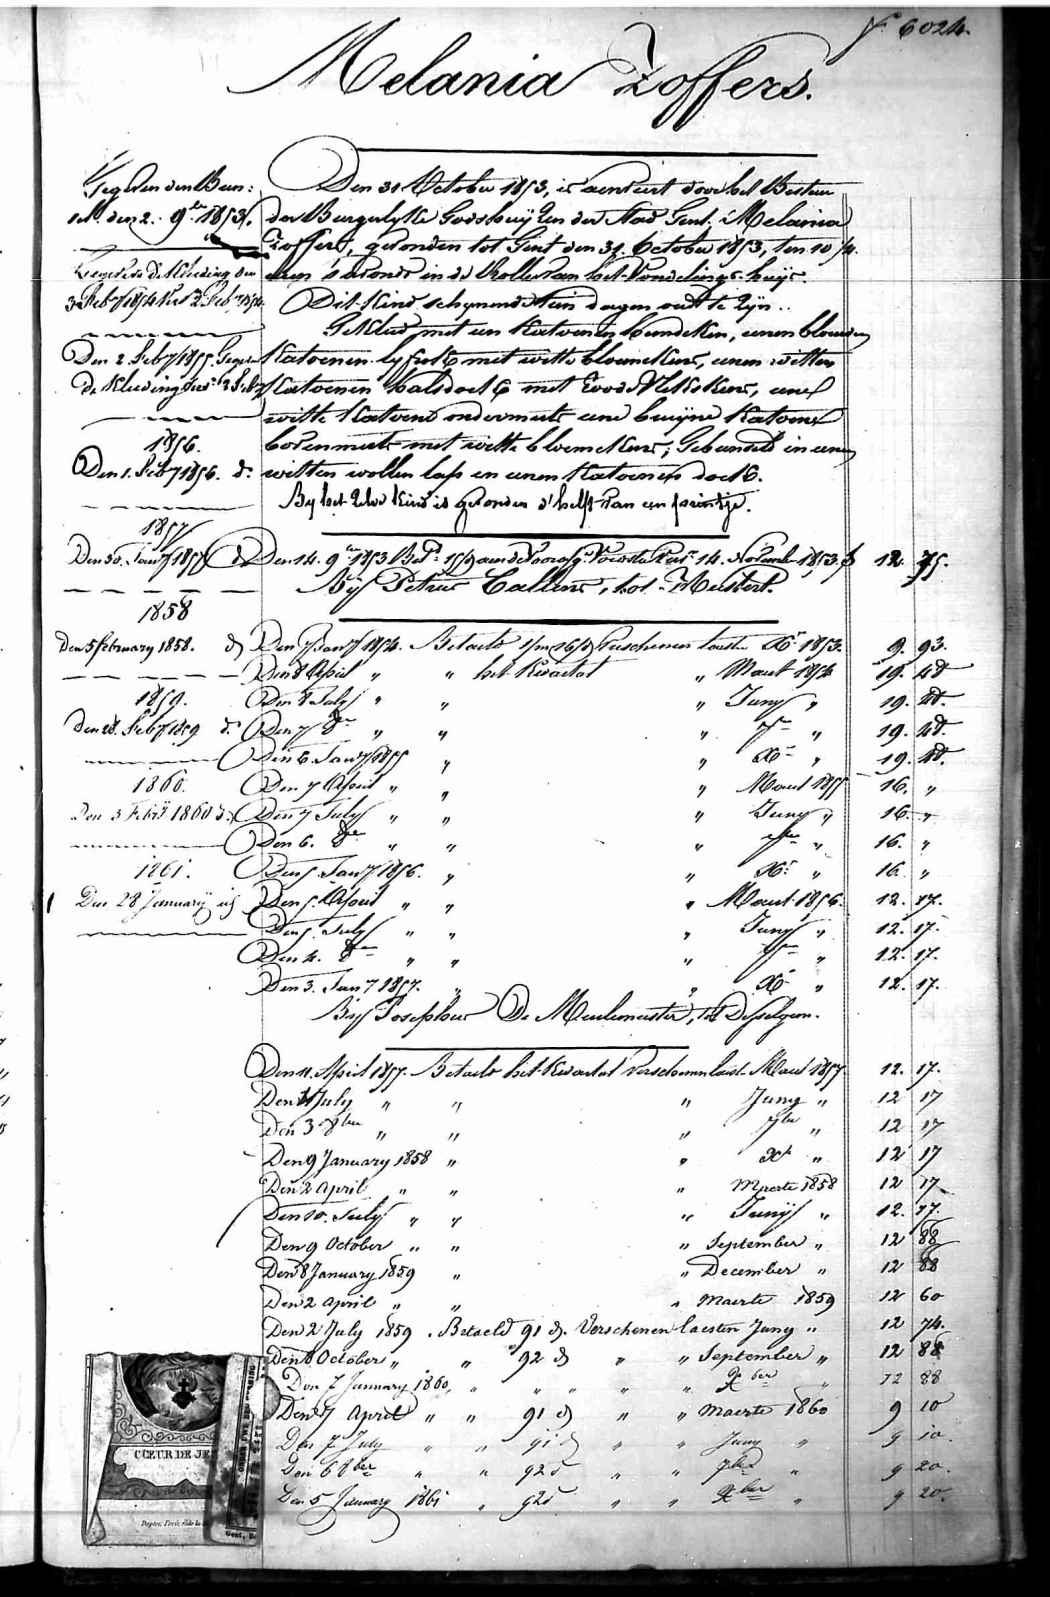 N° 6024.
Melania Zoffers.
Gegeven den Bun:
den 2. 9ber 1853.
Gegeven de Kleeding den
Den 2 Feby 1855. Gegeven
de Kleeding
1856.
Den 1. Feby 1856. do
1857
Den 30. Jany 1857 do
1858
Den 5 february 1858. do
1859.
Den 28. Feby 1859 do
1860.
Den 3 Febrij 1860 do
1861.
Den 28 Januarij
Den 31 October 1853, is aenveirt door het Bestier
der Burgerlyke Godshuijzen der Stad Gent. Melania
Zoffers, gevonden tot Gent den 31. October 1853, ten 10 1/4
uren 's avonds in de Rolle van het Vondelings-huijs.
Dit Kind schynende tien dagen oudt te zyn.
Gekleed met een Katoenen hemdeken, eenen blauwen
Katoenen lyfrok met witte bloemekens, eenen witten
Katoenen halsdoek met roode vlekskens, eene
witte Katoene ondermuts eene bruyne Katoene
bovenmuts met witte bloemekens; Gebunseld in eenen
witten wollen lap en eenen Katoenen doek.
By het zelve Kind is gevonden d'helft van een sanctje.
Den 14. 9ber 1853 14. November 1853. 12. 75.
Bij Petrus Callens, tot Meulebeke.
Den 7 Jany 1854. Betaelt Verschenen laesten Xr 1853. 9. 93.
Den 8 April " " het Kwartal " Maert 1854 19. 48
Den 8 July " " " Juny " 19. 48.
Den 7 8bre " " " 7bre " 19. 48.
Den 6. Jany 1855 " " Xr " 19. 48.
Den 7 April " " " Maert 1855 16. "
Den 7 July " " " Juny " 16. "
Den 6. 8bre " " " 7bre " 16. "
Den 5 Jany 1856. " " Xr " 16. "
Den 5. April " " " Maert 1856. 12. 17.
Den 5. July " " " Juny " 12. 17.
Den 4. 8bre " " " 7bre " 12. 17.
Den 3. Jany 1857. " " Xr " 12. 17.
Bij Josephus De Meulemeester, tot Desselgem.
Den 11. April 1857. Betaelt het Kwartal verschenen laest. Maert 1857. 12. 17.
Den 11 July " " " Juny " 12 17
Den 3 8bre " " " 7bre " 12 17
Den 9 January 1858 " " Xr " 12 17
Den 2 april " " " Maerte 1858 12 17
Den 10. July " " " Junij " 12. 17.
Den 9 October " " " September " 12 88
Den 8 January 1859 " " December " 12 88
Den 2 april " " " Maerte 1859 12 60
Den 2 July 1859. Betaeld 91 d. Verschenen laesten Juny " 12 74.
Den 8 October " " 92 d " " September " 12 88
Den 7 January 1860, " " " " Xber " 12 88
Den 7 April " " 91 d " " Maerte 1860 9 10
Den 7 July " " 91 d " " Juny " 9 10.
Den 6 8ber " " 92 d " " 7ber " 9 20.
Den 5 January 1861 " 92 d " " Xber " 9 20.
CŒUR DE JE